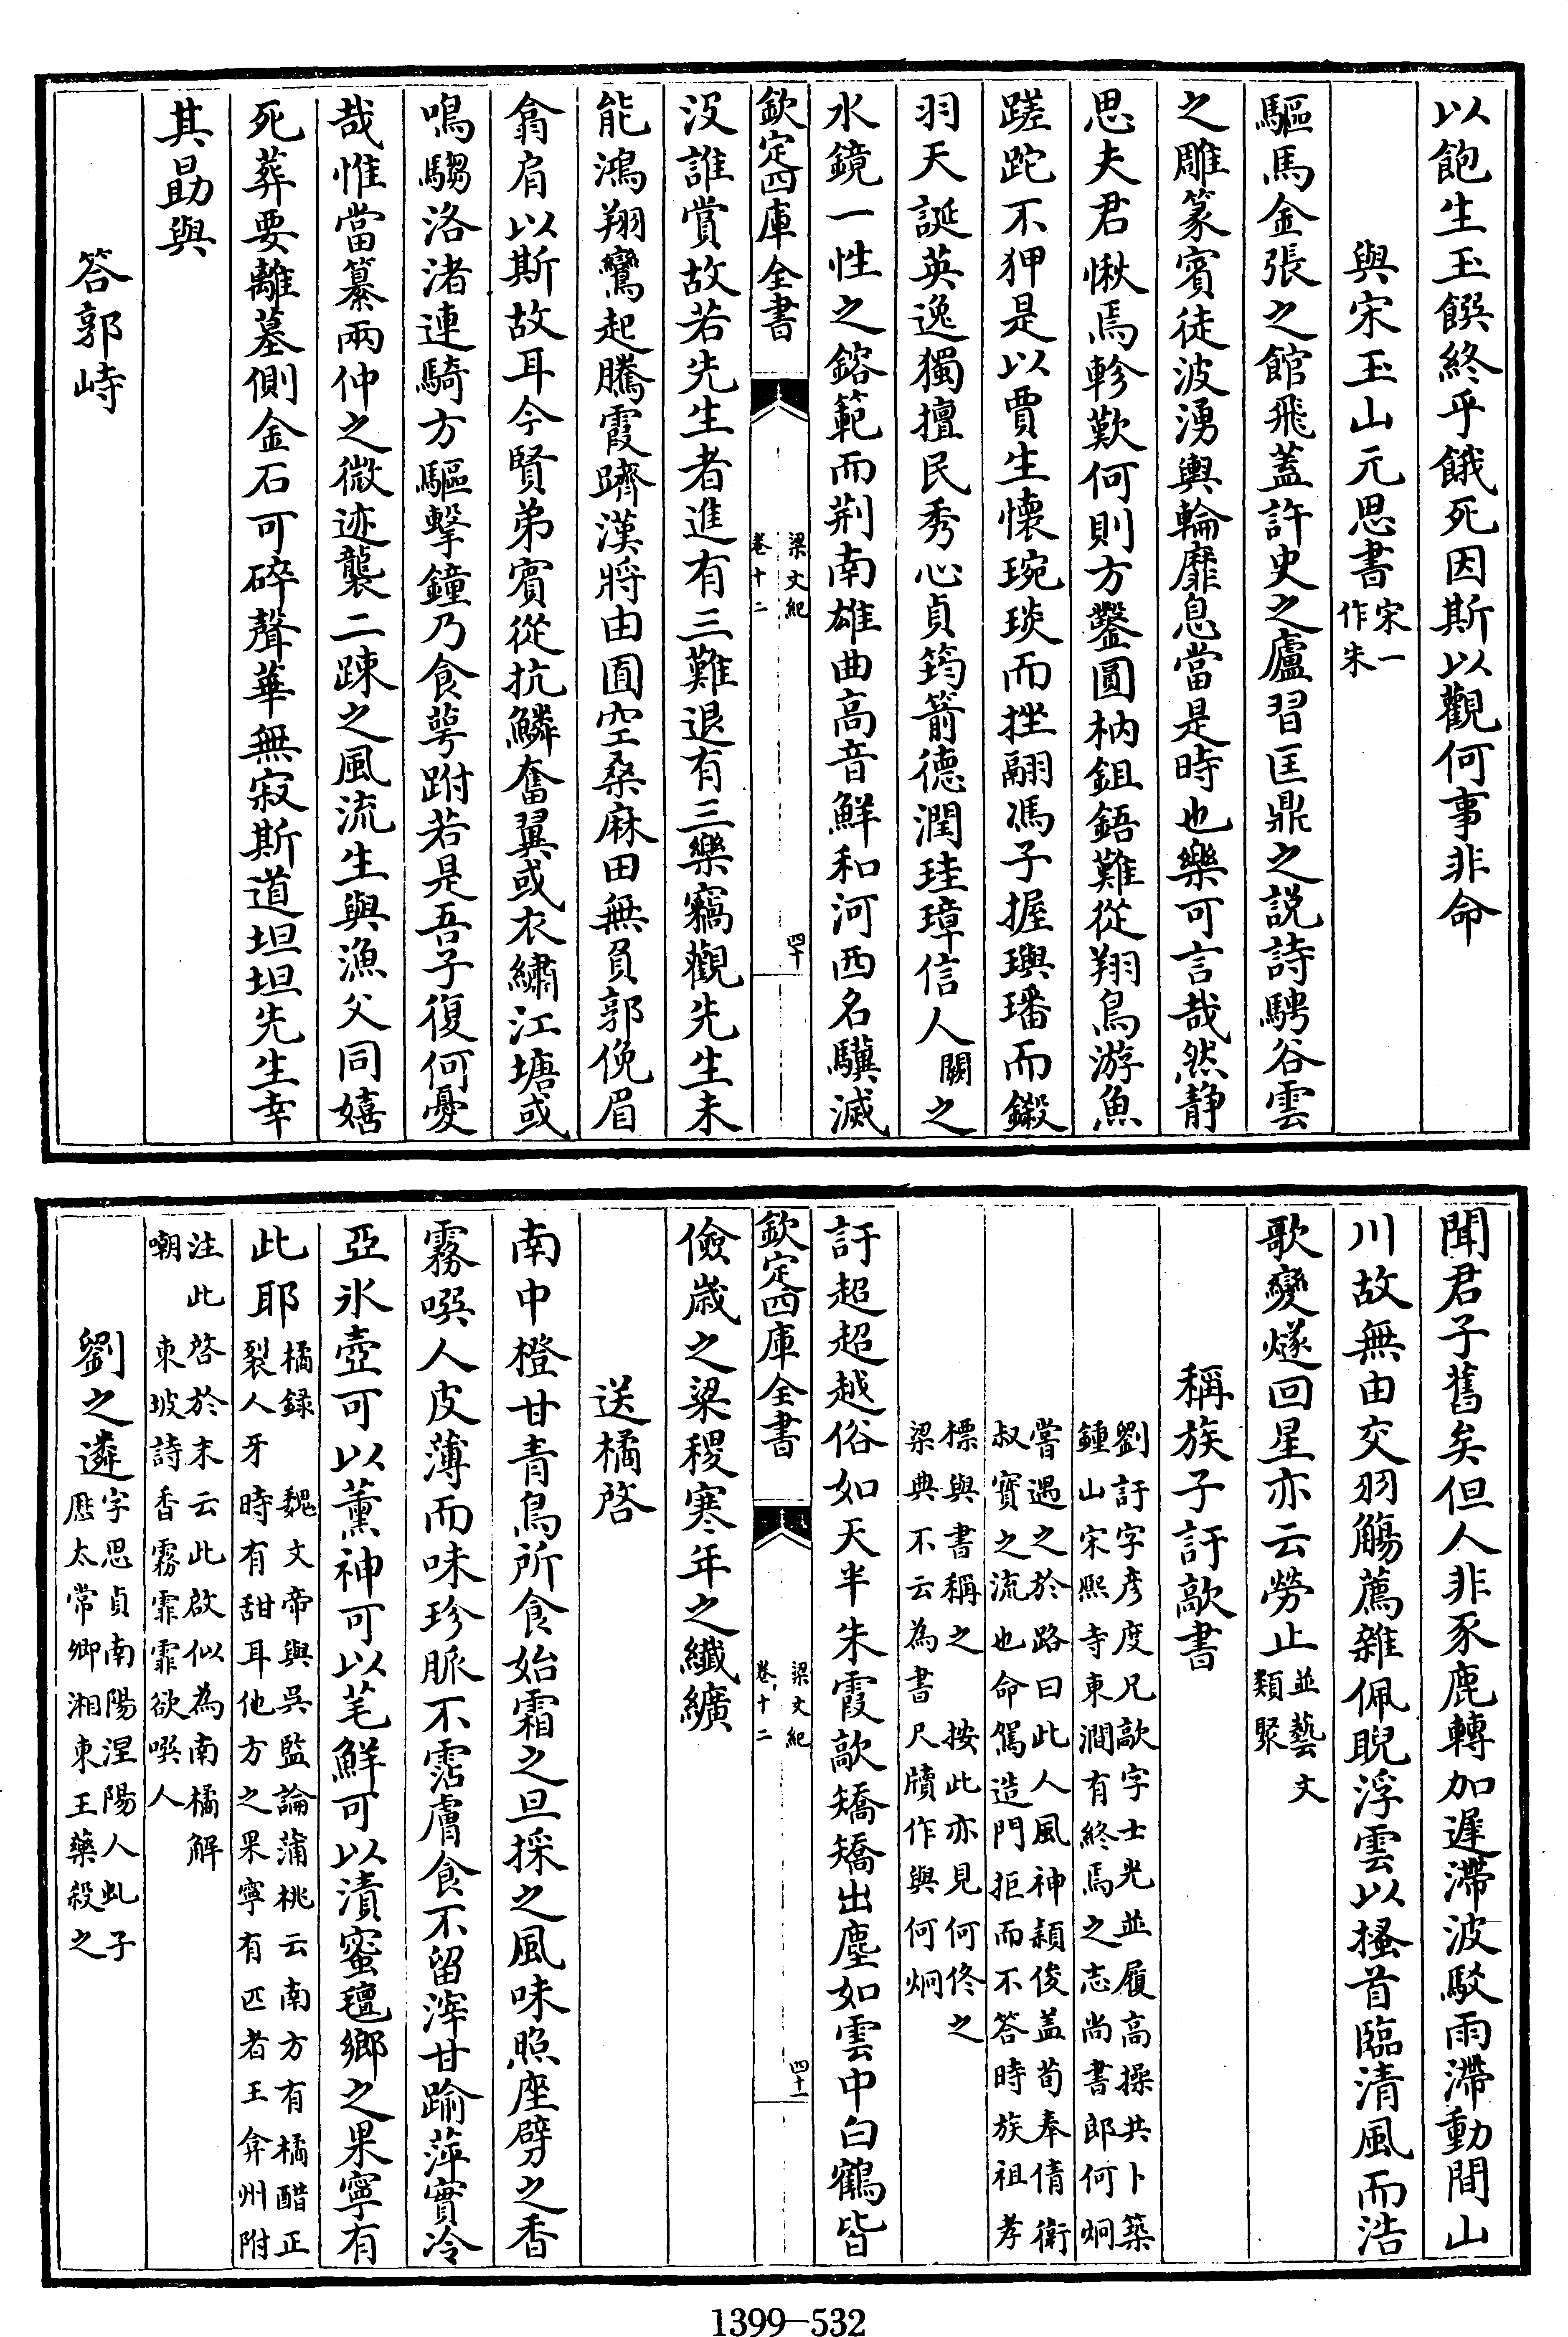 以飽生玉饌終乎餓死因斯以觀何事非命
與宋玉山元思書宋一作朱
驅馬金張之館飛蓋許史之廬習匡鼎之説詩騁谷雲
之雕篆賓徒波湧輿輪靡息當是時也樂可言哉然静
思夫君愀焉軫歎何則方鑿圓枘鉏鋙難從翔鳥游魚
蹉跎不狎是以賈生懷琬琰而挫翮馮子握璵璠而鎩
羽天誕英逸獨擅民秀心貞筠箭德潤珪璋信人闕之
水鏡一性之鎔範而荆南雄曲高音鮮和河西名驥滅
欽定四庫全書
梁文紀
卷十二
四十
没誰賞故若先生者進有三難退有三樂竊觀先生未
能鴻翔鸞起騰霞躋漢將由圓空桑麻田無負郭俛眉
翕肩以斯故耳今賢弟賓從抗鱗奮翼或衣繡江塘或
鳴騶洛渚連騎方驅擊鐘乃食萼跗若是吾子復何憂
哉惟當纂兩仲之微迹襲二踈之風流生與漁父同嬉
死葬要離墓側金石可碎聲華無寂斯道坦坦先生幸
其勗與
答郭峙
聞君子舊矣但人非豕鹿轉加遲滯波駁雨滯動間山
川故無由交羽觴薦雜佩睨浮雲以搔首臨清風而浩
歌變燧回星亦云勞止並藝文類聚
稱族子訏歊書
劉訏字彦度兄歊字士光並履高操共卜築
鍾山宋熙寺東澗有終焉之志尚書郎何炯
嘗遇之於路曰此人風神頴俊盖荀奉倩衛
叔寳之流也命駕造門拒而不答時族祖孝
標與書稱之　按此亦見何佟之
梁典不云為書尺牘作與何炯
訏超超越俗如天半朱霞歊矯矯出塵如雲中白鶴皆
欽定四庫全書
梁文紀
卷十二
四十一
儉歲之粱稷寒年之纖纊
送橘啓
南中橙甘青鳥所食始霜之旦採之風味照座劈之香
霧噀人皮薄而味珍脈不霑膚食不留滓甘踰萍實冷
亞氷壺可以薰神可以芼鮮可以漬蜜氊鄉之果寧有
此耶橘録　魏文帝與吳監論蒲桃云南方有橘醋正
裂人牙時有甜耳他方之果寧有匹者王弇州附
注此啓於末云此啟似為南橘解
嘲　東坡詩香霧霏霏欲噀人
劉之遴字思貞南陽涅陽人虬子
歷太常卿湘東王藥殺之
1399—532